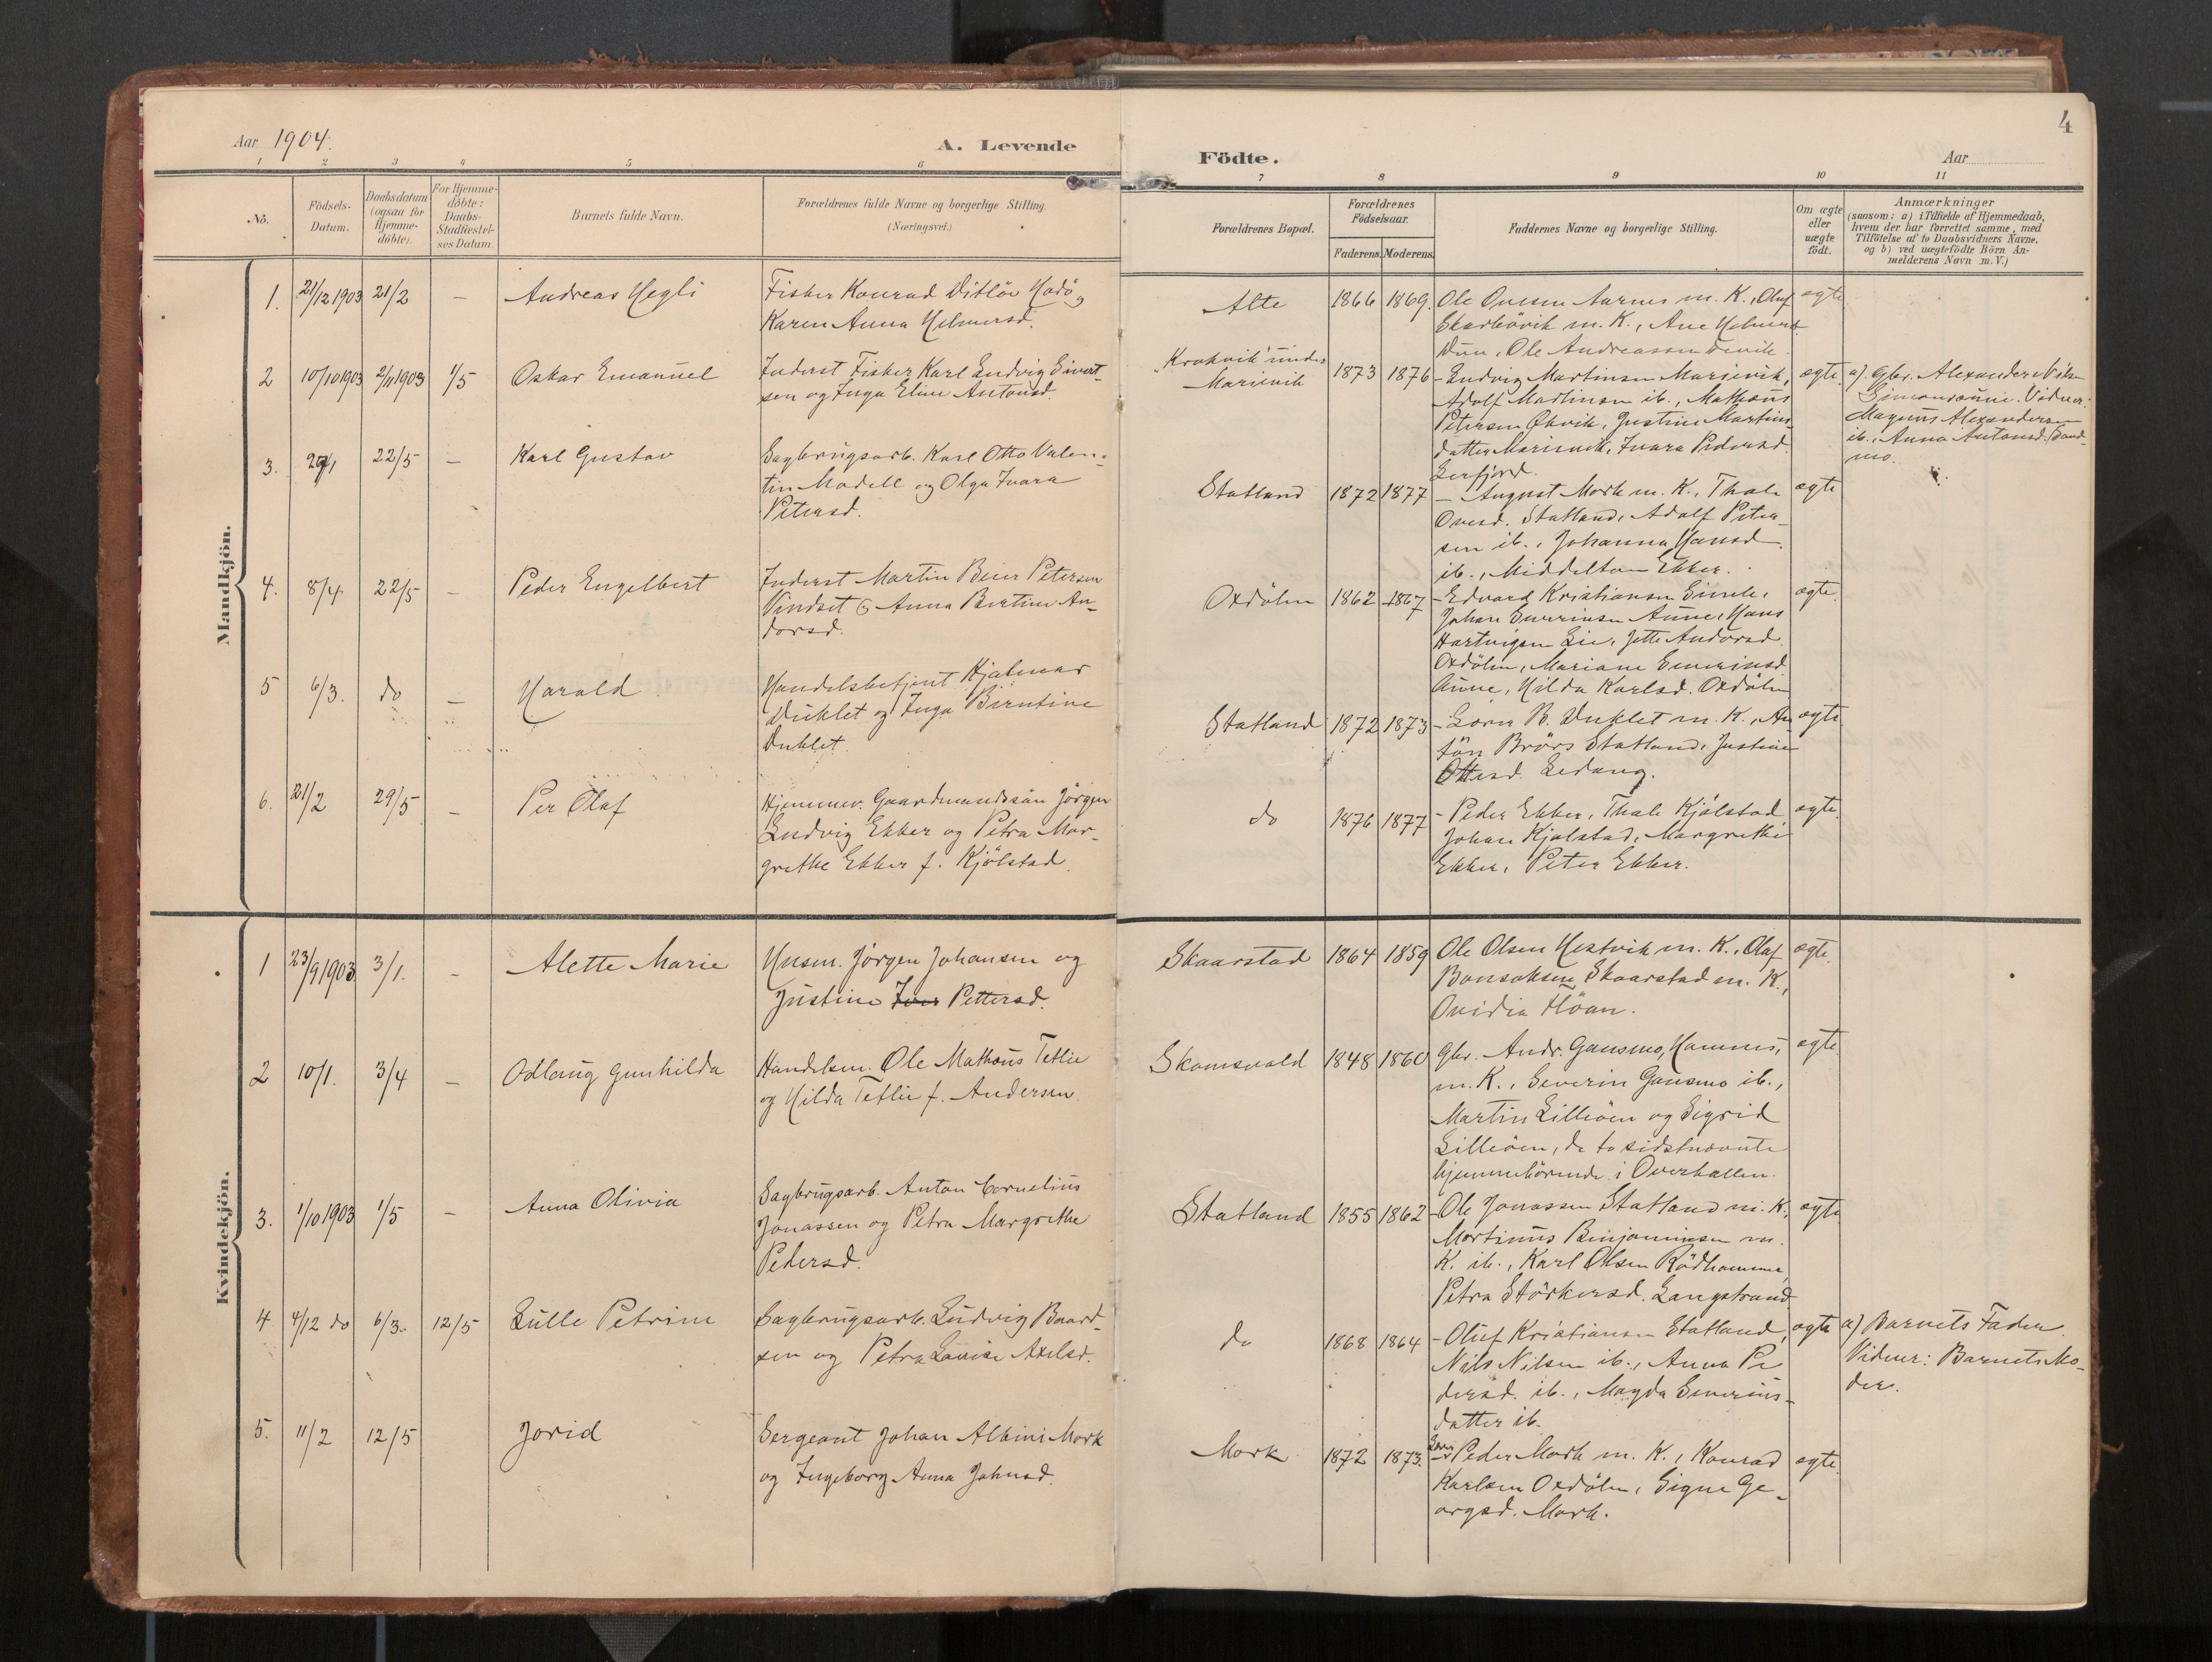 Aar 1904.
A. Levende
Födte.
Aar
4
1 2 3 4 5 6 7 8 9 10 11
No.
Födsels-
Datum.
Daabsdatum
(ogsaa for
Hjemme-
döbte).
For Hjemme-
döbte:
Daabs-
Stadfæstel-
ses Datum.
Barnets fulde Navn.
Forældrenes fulde Navne og borgerlige Stilling.
(Næringsvei.)
Forældrenes Bopæl.
Forældrenes
Födselsaar.
Faderens. Moderens.
Faddernes Navne og borgerlige Stilling.
Om ægte
eller
uægte
födt.
Anmærkninger
(saasom: a) i Tilfælde af Hjemmedaab,
hvem der har forrettet samme, med
Tilföielse af to Daabsvidners Navne,
og b) ved uægtefödte Börn An-
melderens Navn m. V.)
Mandkjön.
1. 21/12 1903 21/2 – Andreas Hegli
Fisker Konrad Ditlöv Hodö og
Karen Anna Helmersd.
Alte 1866 1869.
Ole Ovesen Aarnes m. K., Oluf
Skarhövik m. K., Ane Helmersd
Dun, Ole Andreassen
ægte
2 10/10 1903 2/11 1903 1/5 Oskar Emanuel
Inderst Fisker Karl Ludvig Sivert-
sen og Inga Eline Antonsd.
"Krokvik" under
Marievik
1873 1876
– Ludvig Martinsen Marievik,
Adolf Martinsen ib., Mathæus
Petersen Økvik, Justine Martins-
datter Marievik, Ivara Pedersd.
Lerfjord.
ægte.
a). Gbr. Alexander Nils
Vidner:
Magnus Alexandersen
ib., Anna Antonsd. Sand-
mo.
3. 29/1 22/5 – Karl Gustav
Sagbrugsarb. Karl Otto Valen-
tin Modell og Olga Ivara
Petersd.
Statland 1872 1877
– August Mork m. K., Thale
Ovesd. Statland, Adolf Peter-
sen ib., Johanna Hansd.
ib., Middelton Ekker.
ægte
4. 8/4 22/5 – Peder Engelbert
Inderst Martin Beier Petersen
Vindset & Anna Bertine An-
dorsd.
Oxdölen 1862 1867
– Edvard Kristiansen Simle,
Johan Severinsen Aune, Hans
Hartvigsen Lie, Jette Andorsd.
Oxdölen, Mariane Severinsd
Aune, Hilda Karlsd. Oxdölen
ægte.
5 6/3. do – Harald
Handelsbetjent Hjalmar
Duklet og Inga Berntine
Duklet.
Statland 1872 1873
– Lorn B. Duklet m. K., An
fön Brörs Statland, Justine
Ottesd. Ledang.
ægte
6. 21/2 29/5 – Per Olaf
Hjemmev. Gaardmandssön Jörgen
Ludvig Ekker og Petra Mar-
grethe Ekker f. Kjölstad.
do 1876 1877
– Peder Ekker, Thale Kjölstad
Johan Kjölstad, Margrethe
Ekker, Peter Ekker.
ægte.
Kvindekjön.
1 23/9 1903 3/1. – Alette Marie
Husm. Jörgen Johansen og
Justine Pettersd.
Skaarstad 1864 1859
Ole Olsen Hestvik m. K., Olaf
Bonsaksen, Skaarstad m. K.,
Ovidia Höan.
ægte.
2 10/1. 3/4 – Odlaug Gunhilda
Handelsm. Ole Mathæus Tetlie
og Hilda Tetlie f. Andersen.
Skomsvold 1848 1860
Gbr. Andr. Gansmo, Hamnes,
m. K., Severin Gansmo ib.,
Martin Lilleöen og Sigrid
Lilleöen, de to sidstnævnte
hjemmehörende i Overhallen.
ægte.
3. 1/10 1903 1/5 – Anna Olivia
Sagbrugsarb. Anton Cornelius
Jonassen og Petra Margrethe
Pedersd.
Statland 1855 1862
– Ole Jonassen Statland m. K.,
Martinus Benjaminsen m.
K. ib., Karl Olsen Rödhammer,
Petra Störkersd. Langstrand
ægte
4 4/12 do 6/3. 12/5 Lulle Petrine
Sagbrugsarb. Ludvig Baard-
sen og Petra Lovise Axelsd.
do 1868 1864
– Oluf Kristiansen Statland,
Nils Nilsen ib., Anna Pe
dersd. ib., Magda Severins-
datter ib.
ægte
a) Barnets Fader.
Vidner: Barnets Mo-
der.
5. 11/2 12/5 Jorid
Sergeant Johan Albini Mork
og Ingeborg Anna Johnsd.
Mork 1872 1873.
Peder Mork m. K., Konrad
Karlsen Oxdölen, Signe Ge-
orgsd. Mork.
ægte.